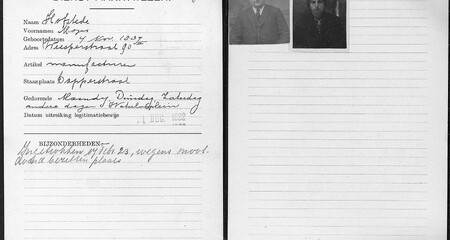 DIENST MARKTWEZEN
Naam Hofstede
Voornamen Mozes
Geboortedatum 4 Nov. 1907
Adres Weesperstraat 90 III
Artikel manufacturen
Staanplaats Dapperstraat
Gedurende Maandag Dinsdag Zaterdag
andere dagen Waterlooplein
Datum uitreiking legitimatiebewijs
1 DEC. 1922
BIJZONDERHEDEN:
Ingetrokken wegens
bezetten plaats